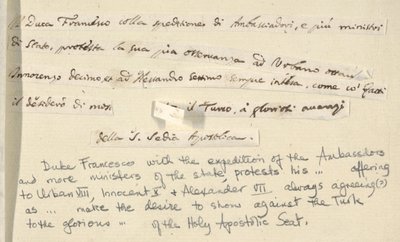 Il Duca Francesco colla spedizione di Ambasciadori, e più ministri
di Stato, protesta la sua pia osservanza ad Urbano ottavo
Innocenzo decimo et ad Alessandro settimo sempre intesa, come co' fatti
il desiderò di mos il Turco, à gloriosi
della S. Sedia Apostolica.
Duke Francesco with the expedition of the Ambassadors
and more ministers of the state, protests his ... offering
to Urban VIII, Innocent X + Alexander VII always agreeing(?)
as ... make the desire to show against the Turk
to the glorious ... of the Holy Apostolic Seat.